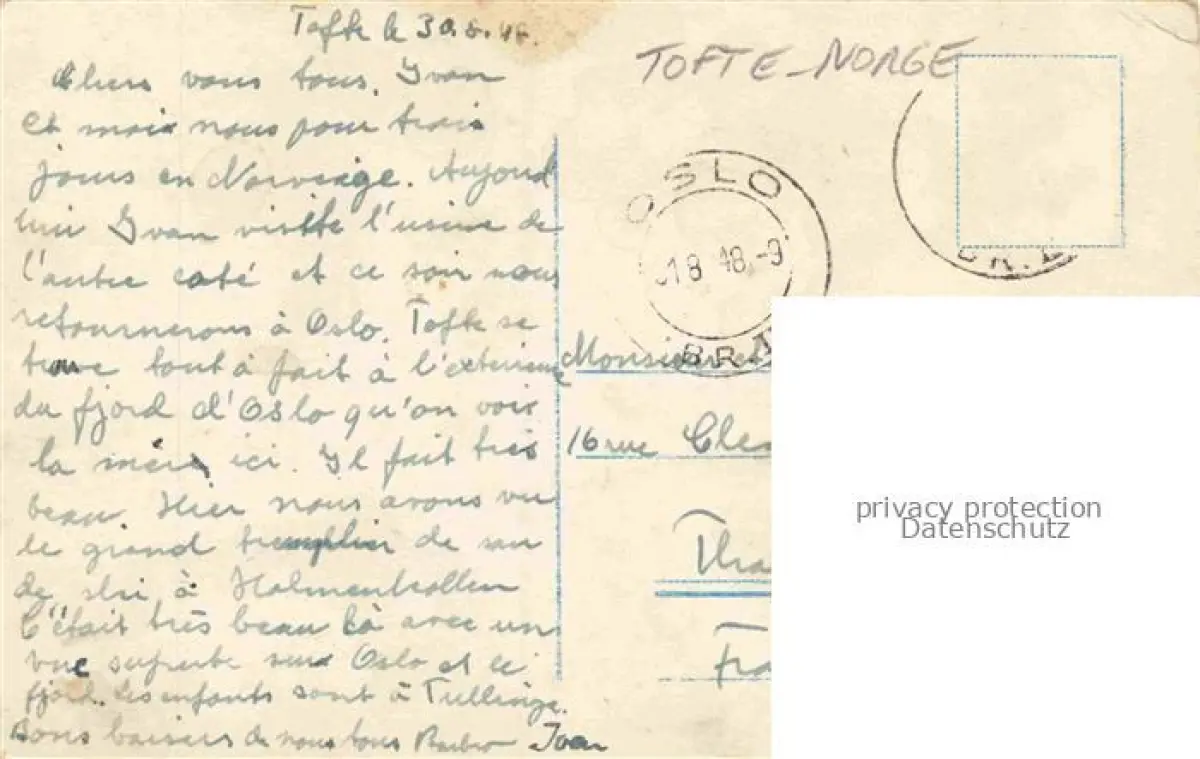 Tofte le 30.8.48.
Chers vous tous. Yvan
et moi nous pour trois
jours en Norvège. Aujourd
hui Yvan visite l'usine de
l'autre coté et ce soir nous
retournerons à Oslo. Tofte se
trouve tout à fait à l'exterieure
du fjord d'Oslo qu'on voit
la mer ici. Il fait très
beau. Hier nous avons vu
le grand tremplin de saut
de ski à Holmenkollen
C'était très beau là avec un
vue superbe sur Oslo et le
fjord. Les enfants sont à Tullinge.
Bons baisers de nous tous Yvan
TOFTE - NORGE
OSLO
31 8 48.-9
BR.
BR.
Monsieur et
16 rue Cle
Tha
Fra
privacy protection
Datenschutz